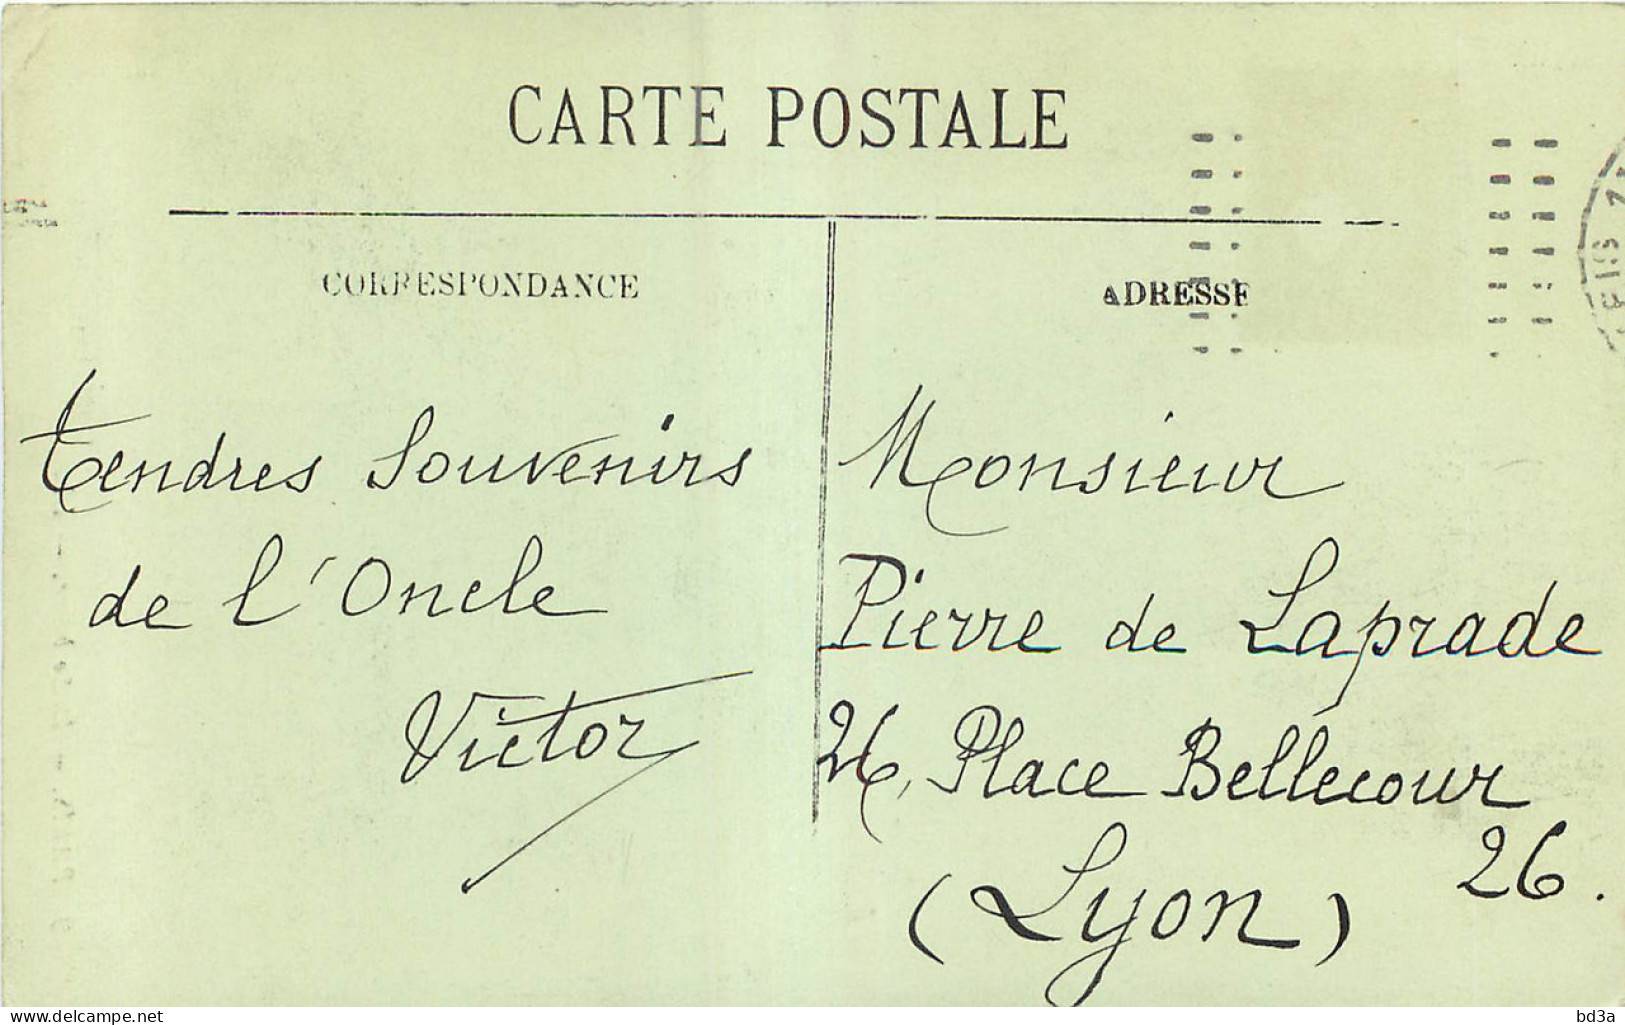 CARTE POSTALE
CORRESPONDANCE
ADRESSE
Tendres Souvenirs
de l'Oncle
Victor
Monsieur
Pierre de Laprade
26, Place Bellecour
26.
(Lyon)
www.delcampe.net
bd3a